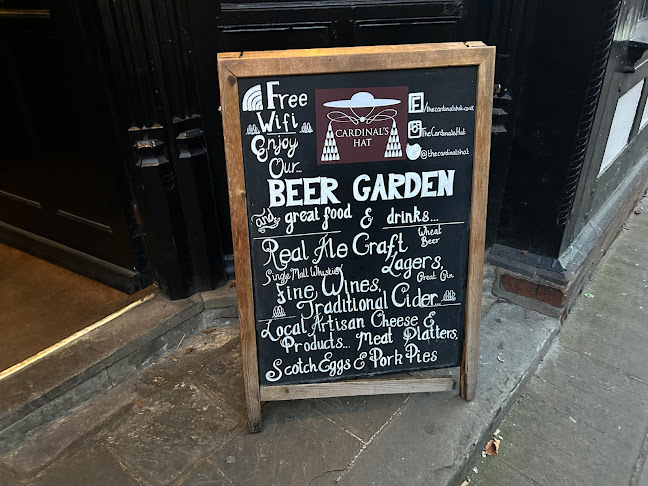 Free
Wifi
CARDINAL'S
HAT
/thecardinalshat.co.uk
TheCardinalsHat
@thecardinalshat
Enjoy
Our...
BEER GARDEN
and great food & drinks...
Real Ale Craft
Wheat
Beer
Single Malt Whiskies
Lagers,
Great Gin
Fine Wines,
Traditional Cider...
Local Artisan Cheese &
Products... Meat Platters,
Scotch Eggs & Pork Pies